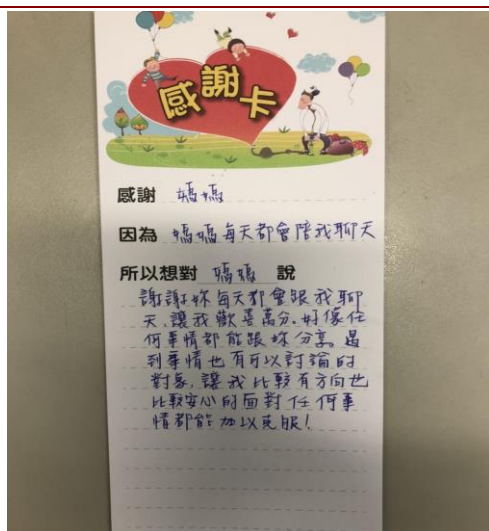 感謝卡
感謝 媽媽
因為 媽媽每天都會陪我聊天
所以想對 媽媽 說
謝謝妳每天都會跟我聊
天,讓我歡喜萬分。好像任
何事情都能跟妳分享。遇
到事情也有可以討論的
對象,讓我比較有方向也
比較安心的面對任何事
情都能加以克服!